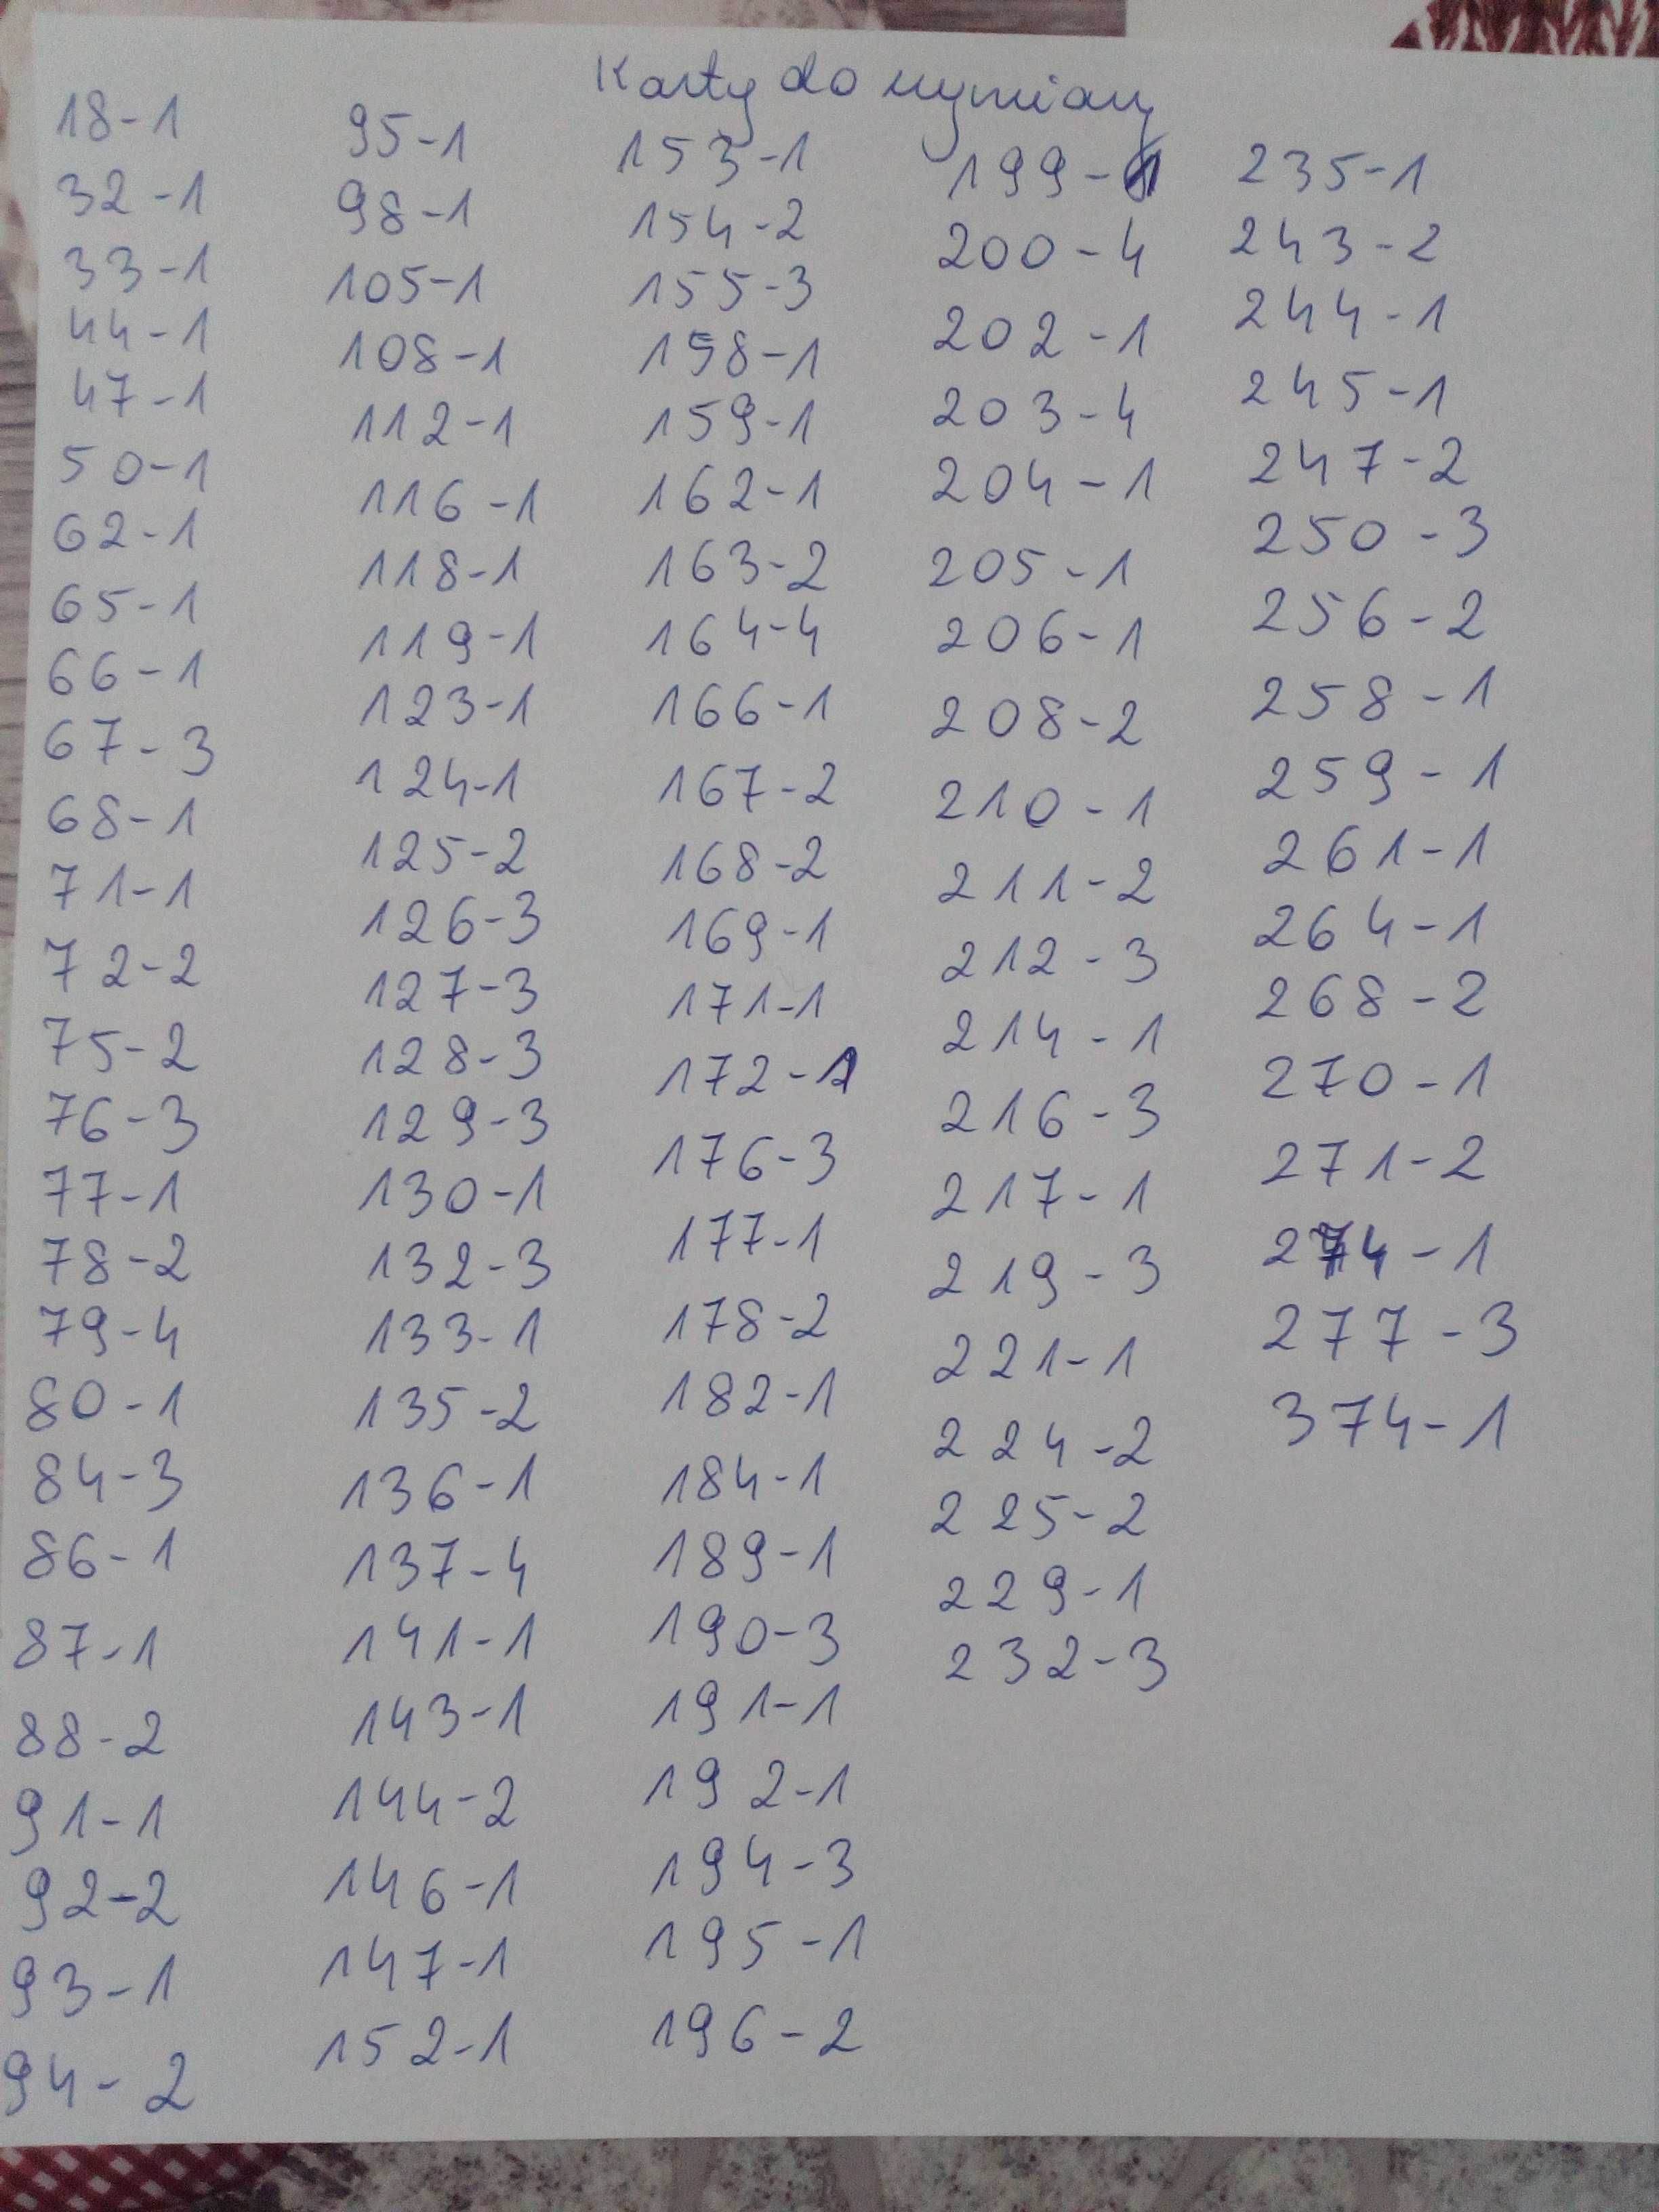 Karty do wymiany
18-1
32-1
33-1
44-1
47-1
50-1
62-1
65-1
66-1
67-3
68-1
71-1
72-2
75-2
76-3
77-1
78-2
79-4
80-1
84-3
86-1
87-1
88-2
91-1
92-2
93-1
94-2
95-1
98-1
105-1
108-1
112-1
116-1
118-1
119-1
123-1
124-1
125-2
126-3
127-3
128-3
129-3
130-1
132-3
133-1
135-2
136-1
137-4
141-1
143-1
144-2
146-1
147-1
152-1
153-1
154-2
155-3
158-1
159-1
162-1
163-2
164-4
166-1
167-2
168-2
169-1
171-1
172-1
176-3
177-1
178-2
182-1
184-1
189-1
190-3
191-1
192-1
194-3
195-1
196-2
199-1
200-4
202-1
203-4
204-1
205-1
206-1
208-2
210-1
211-2
212-3
214-1
216-3
217-1
219-3
221-1
224-2
225-2
229-1
232-3
235-1
243-2
244-1
245-1
247-2
250-3
256-2
258-1
259-1
261-1
264-1
268-2
270-1
271-2
274-1
277-3
374-1